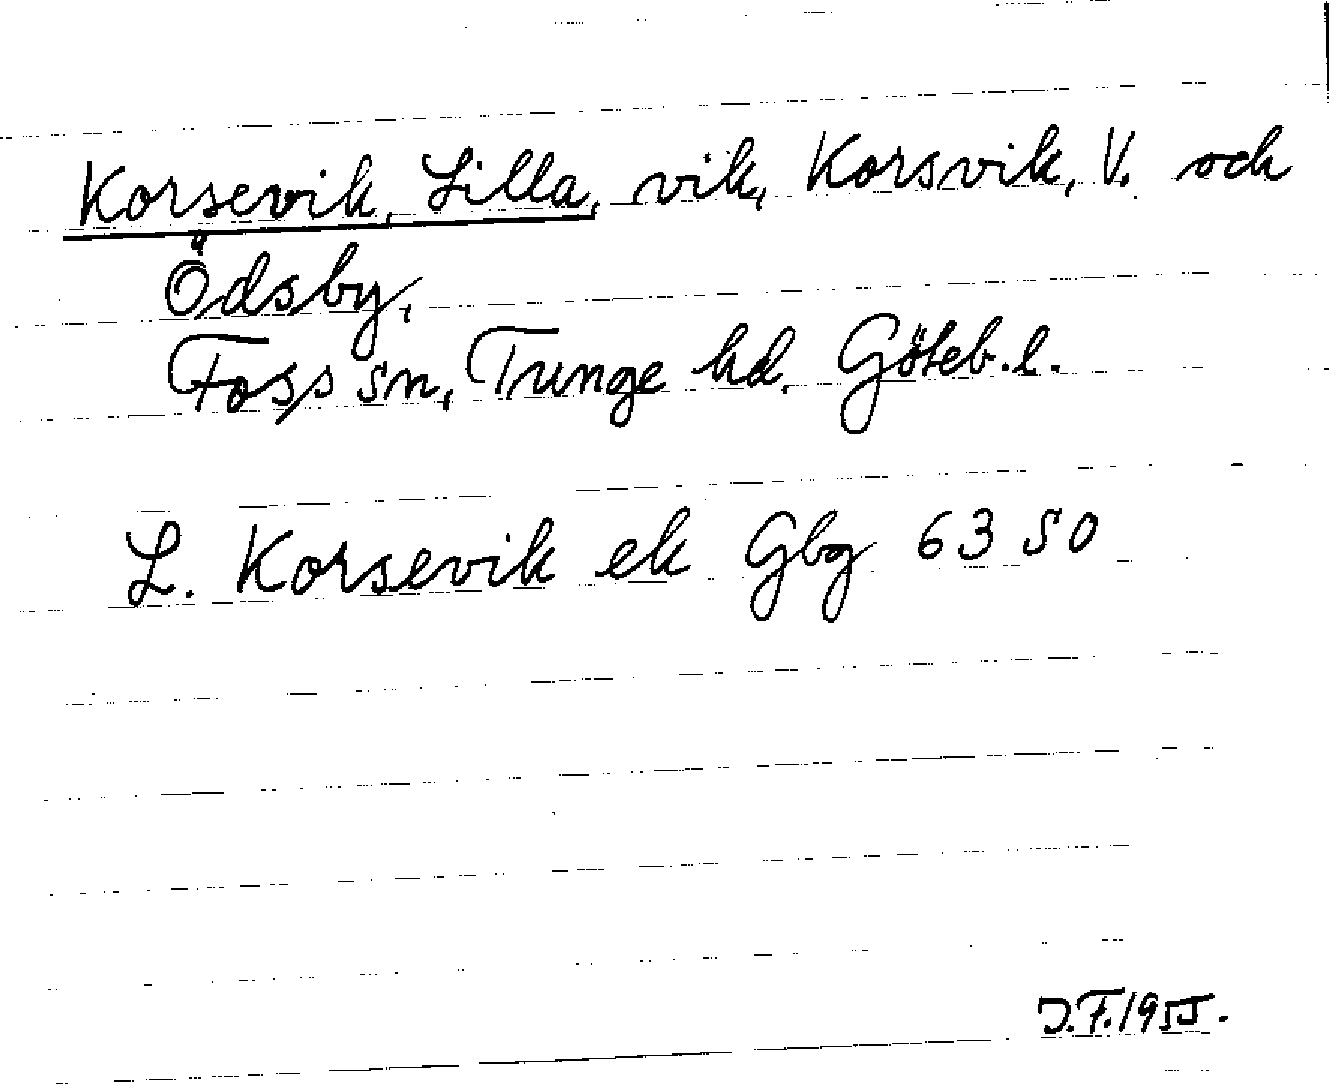 Korsevik, Lilla, vik, Korsvik, V. och
Ödsby,
Foss sn, Tunge hd. Göteb. l.
L. Korsevik ek Gbg 63 SO
J.F. 1955.